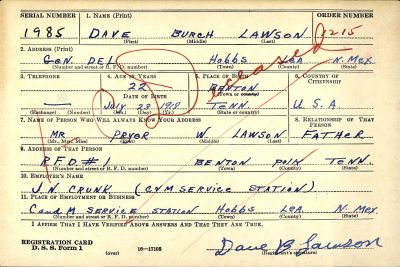 SERIAL NUMBER 1. NAME (Print) ORDER NUMBER
1985 DAVE BURCH LAWSON 1215
(First) (Middle) (Last)
2. ADDRESS (Print)
GEN. DEL HOBBS LEA N. MEX.
(Number and street or R. F. D. number) (Town) (County) (State)
3. TELEPHONE 4. AGE IN YEARS 5. PLACE OF BIRTH 6. COUNTRY OF CITIZENSHIP
22 BENTON
DATE OF BIRTH (Town or county)
JULY 23 1918 TENN. U.S.A.
(Exchange) (Number) (Mo.) (Day) (Yr.) (State or country)
7. NAME OF PERSON WHO WILL ALWAYS KNOW YOUR ADDRESS 8. RELATIONSHIP OF THAT PERSON
MR PRYOR W. LAWSON FATHER
(Mr., Mrs., Miss) (First) (Middle) (Last)
9. ADDRESS OF THAT PERSON
R.F.D. #1 BENTON POLK TENN.
(Number and street or R. F. D. number) (Town) (County) (State)
10. EMPLOYER'S NAME
J.N. CRUNK (CVM SERVICE STATION)
11. PLACE OF EMPLOYMENT OR BUSINESS
C and M SERVICE STATION HOBBS LEA N. MEX.
(Number and street or R. F. D. number) (Town) (County) (State)
I AFFIRM THAT I HAVE VERIFIED ABOVE ANSWERS AND THAT THEY ARE TRUE.
REGISTRATION CARD
D. S. S. Form 1 16—17105 Dave B Lawson